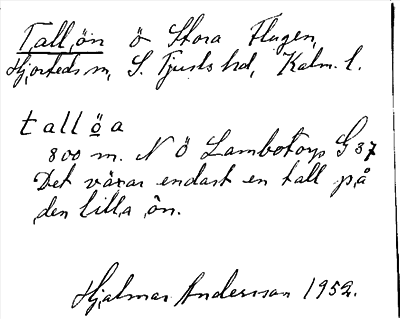 Tallön ö Stora Flugen,
Hjorteds sn, S. Tjusts hd, Kalm. l.
tallöa
800 m. N Ö Lambotorp G 37
Det växer endast en tall på
den lilla ön.
Hjalmar Andersson 1952.